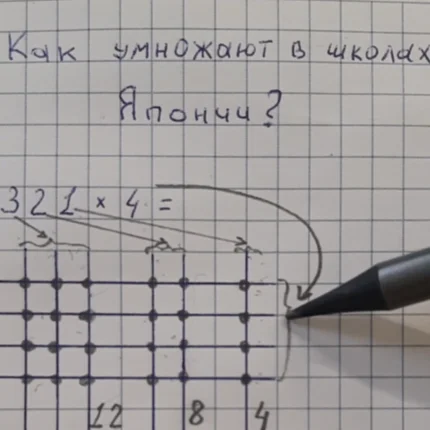 Как умножают в школах
Японии?
321 × 4 =
12 8 4